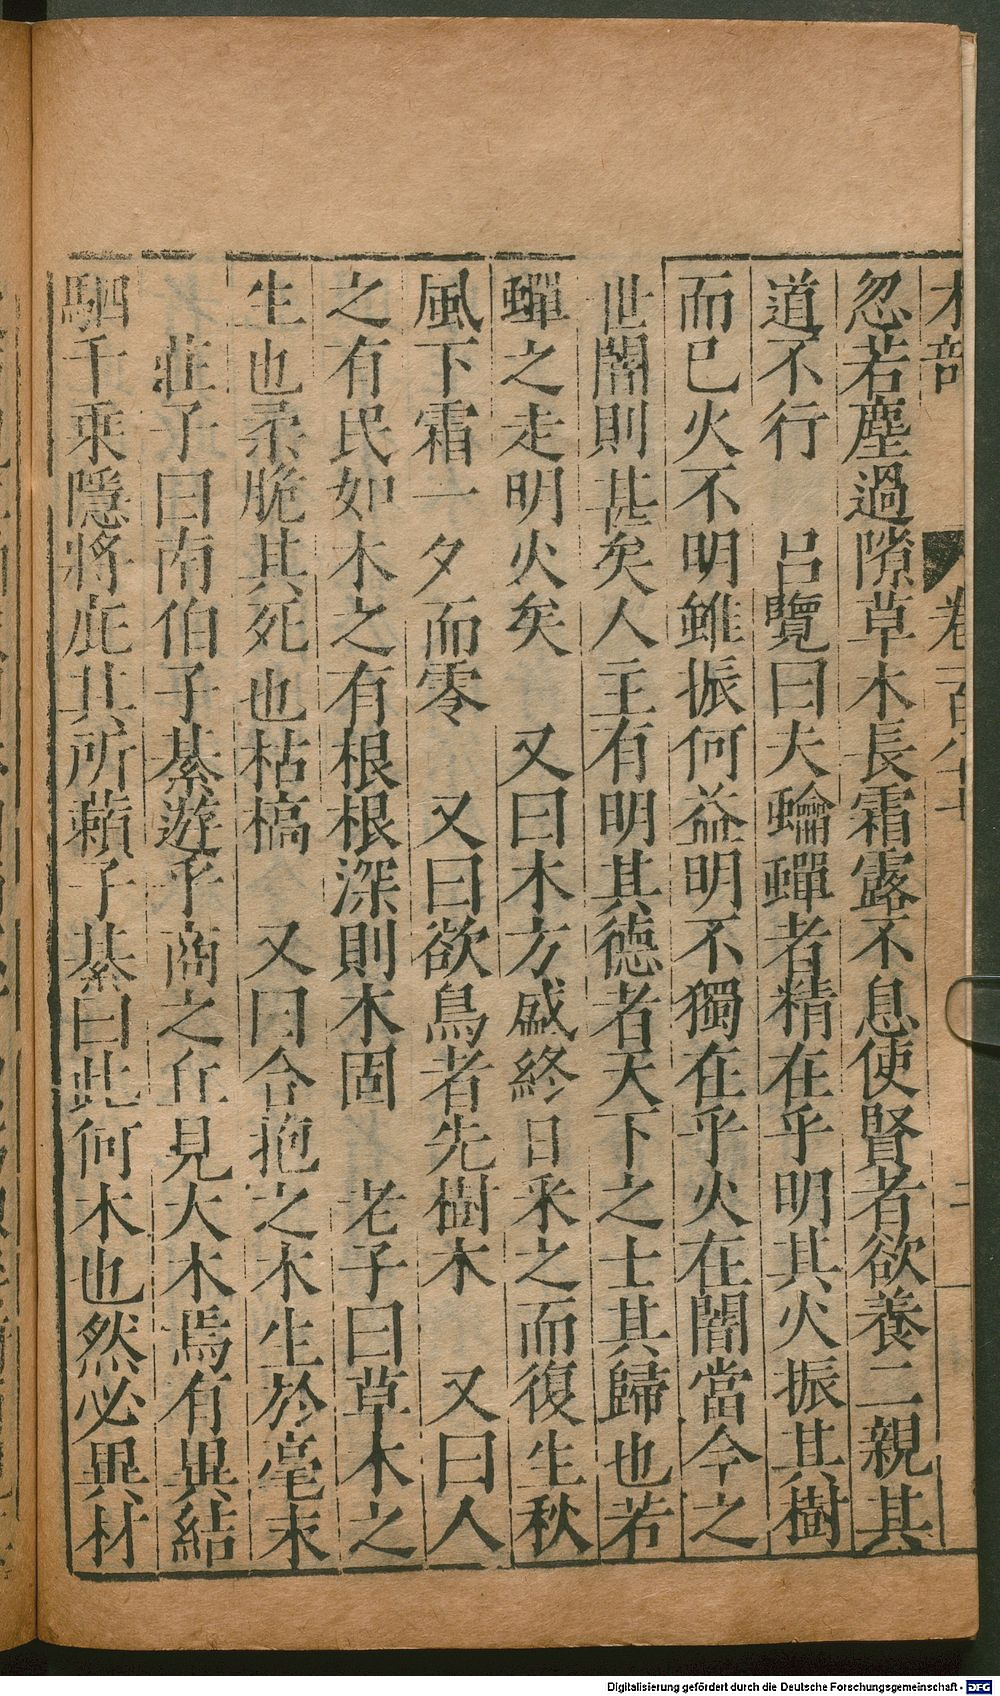 木部 卷一百八十 二
忽若塵過隙草木長霜露不息使賢者欲養二親其
道不行 呂覽曰夫蜦蟬者精在乎明其火振其樹
而巳火不明雖振何益明不獨在乎火在闇當今之
世闇則甚矣人主有明其德者天下之士其歸也若
蟬之走明火矣 又曰木方盛終日采之而復生秋
風下霜一夕而零 又曰欲鳥者先樹木 又曰人
之有民如木之有根根深則本固 老子曰草木之
生也柔脆其死也枯槁 又曰合抱之木生於毫末
莊子曰南伯子綦遊乎商之丘見大木焉有異結
駟千乘隱將庇其所藾子綦曰此何木也然必異材
Digitalisierung gefördert durch die Deutsche Forschungsgemeinschaft - DFG